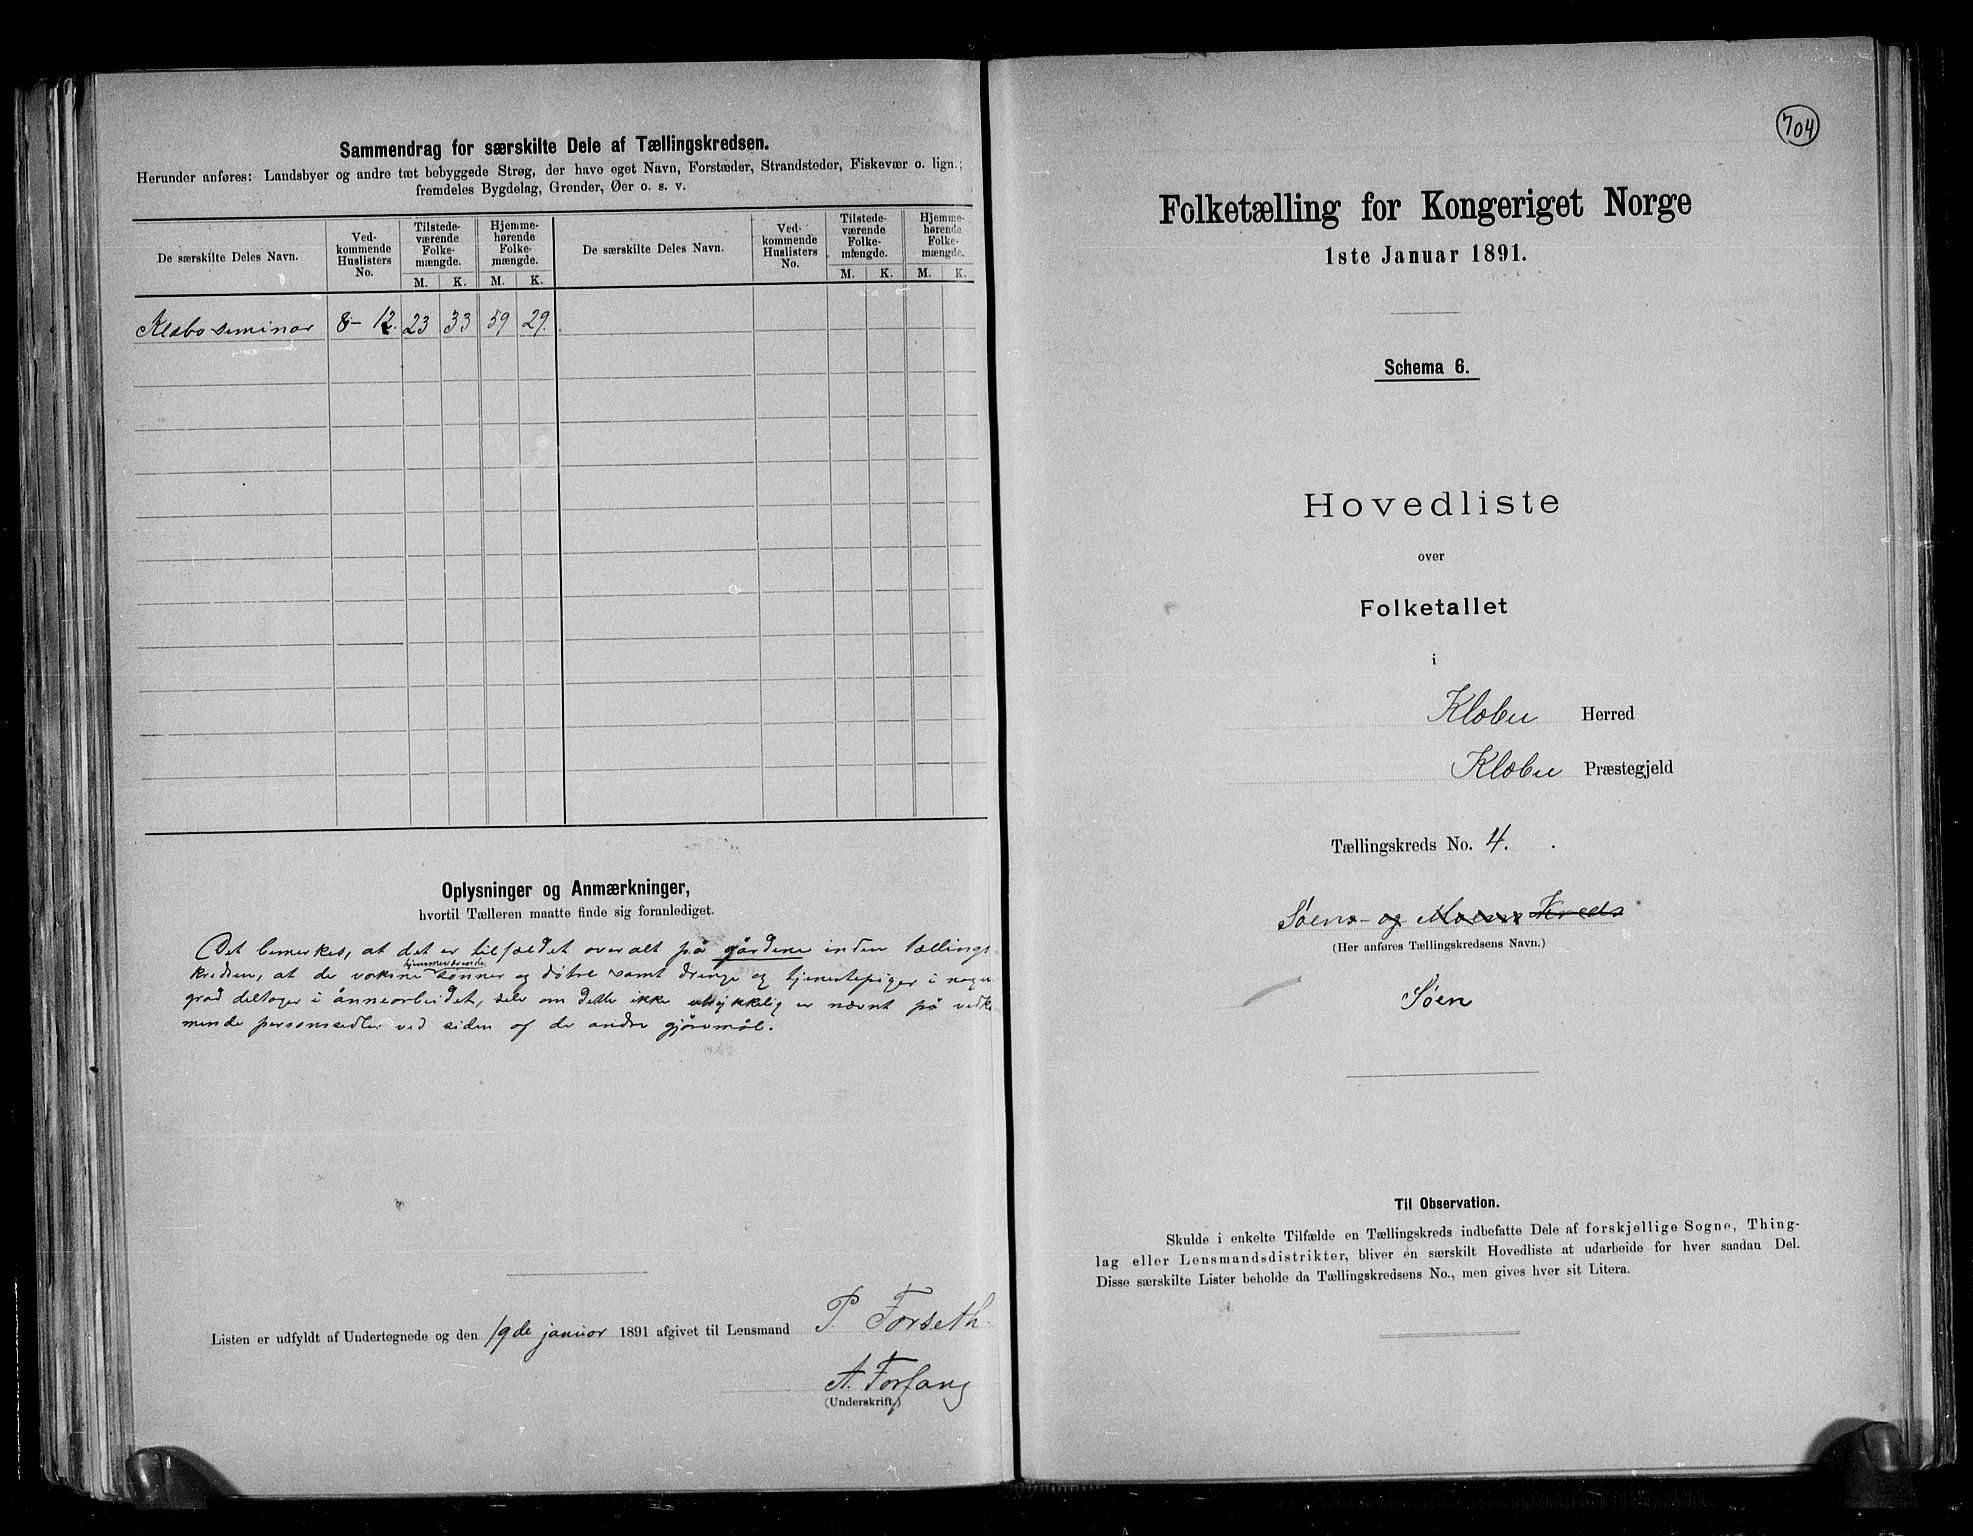 Sammendrag for særskilte Dele af Tællingskredsen.
Herunder anføres: Landsbyer og andre tæt bebyggede Strøg, der have eget Navn, Forstæder, Strandsteder, Fiskevær o. lign.;
fremdeles Bygdelag, Grender, Øer o. s. v.
De særskilte Deles Navn.
Ved-
kommende
Huslisters
No.
Tilstede-
værende
Folke-
mængde.
Hjemme-
hørende
Folke-
mængde.
M. K. M. K.
De særskilte Deles Navn.
Ved-
kommende
Huslisters
No.
Tilstede-
værende
Folke-
mængde.
Hjemme-
hørende
Folke-
mængde.
M. K. M. K.
Klæbo seminar 8- 12. 23 33 59 29.
Oplysninger og Anmærkninger,
hvortil Tælleren maatte finde sig foranlediget.
Det bemerkes, at det er tilfældet overalt på gårdene inden tællings-
kredsen, at de voksne hjemmeværende sønner og døtre samt drenge og tjenestepiger i nogen
grad deltager i ånnearbeidet, selv om dette ikke er nævnt på vedkom
mende personsedler ved siden af de andre gjøremål.
Listen er udfyldt af Undertegnede og den 19de januar 1891 afgivet til Lensmand P. Forseth.
A. Forfang
(Underskrift.)
704
Folketælling for Kongeriget Norge
1ste Januar 1891.
Schema 6.
Hovedliste
over
Folketallet
i
Klæbu Herred
Klæbu Præstegjeld
Tællingskreds No. 4.
Søens- og Moens Kreds
(Her anføres Tællingskredsens Navn.)
Søen
Til Observation.
Skulde i enkelte Tilfælde en Tællingskreds indbefatte Dele af forskjellige Sogne, Thing-
lag eller Lensmandsdistrikter, bliver en særskilt Hovedliste at udarbeide for hver saadan Del.
Disse særskilte Lister beholde da Tællingskredsens No., men gives hver sit Litera.